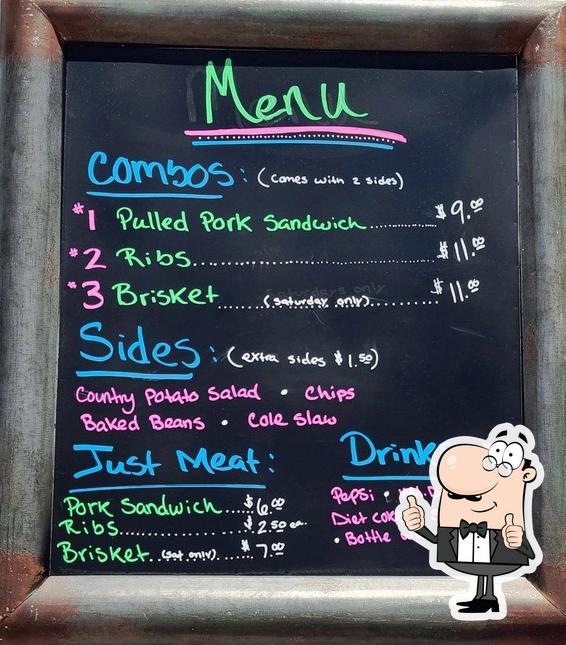 Menu
Combos: (comes with 2 sides)
#1 Pulled Pork Sandwich......... $9.00
#2 Ribs......... $11.00
#3 Brisket......(saturday only)......... $11.00
Sides: (extra sides $1.50)
Country Potato Salad • Chips
Baked Beans • Cole Slaw
Just Meat:
Pork Sandwich.... $6.00
Ribs......... $2.50 ea.
Brisket..(sat only)..... $7.00
Drink
Pepsi •
Diet
• Bottle